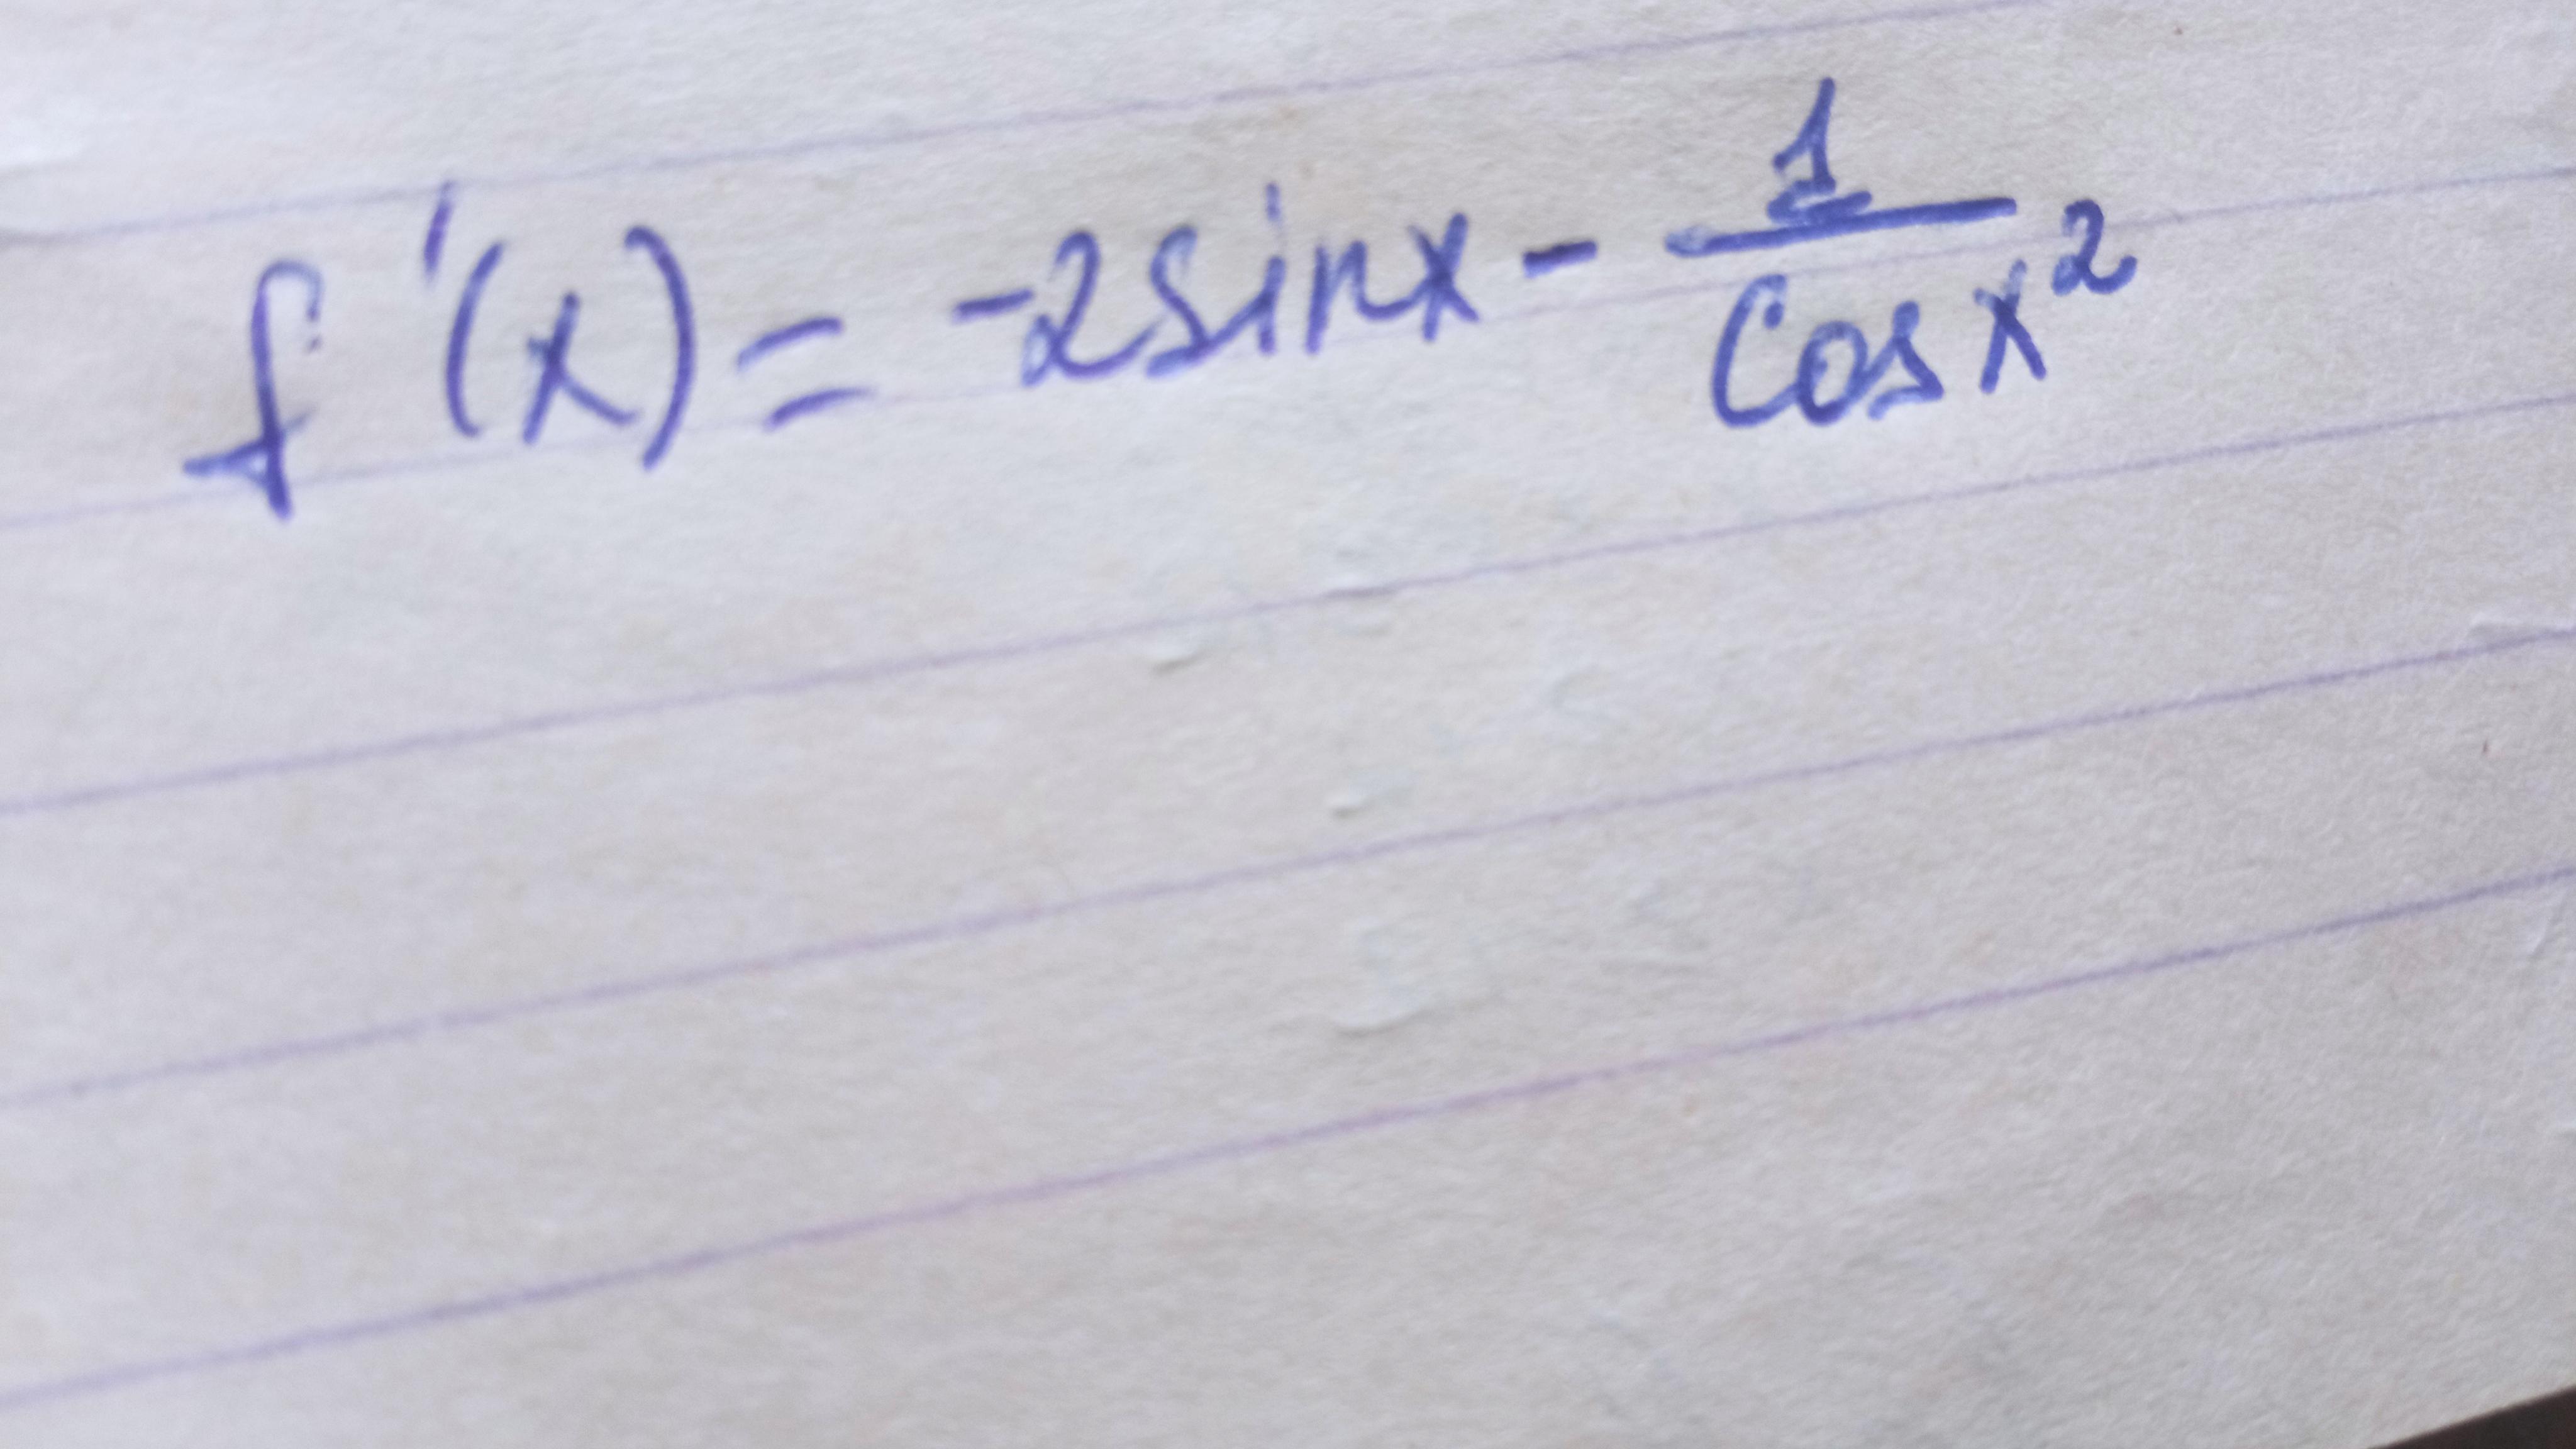 f'(x) = -2sinx - 1/cosx²